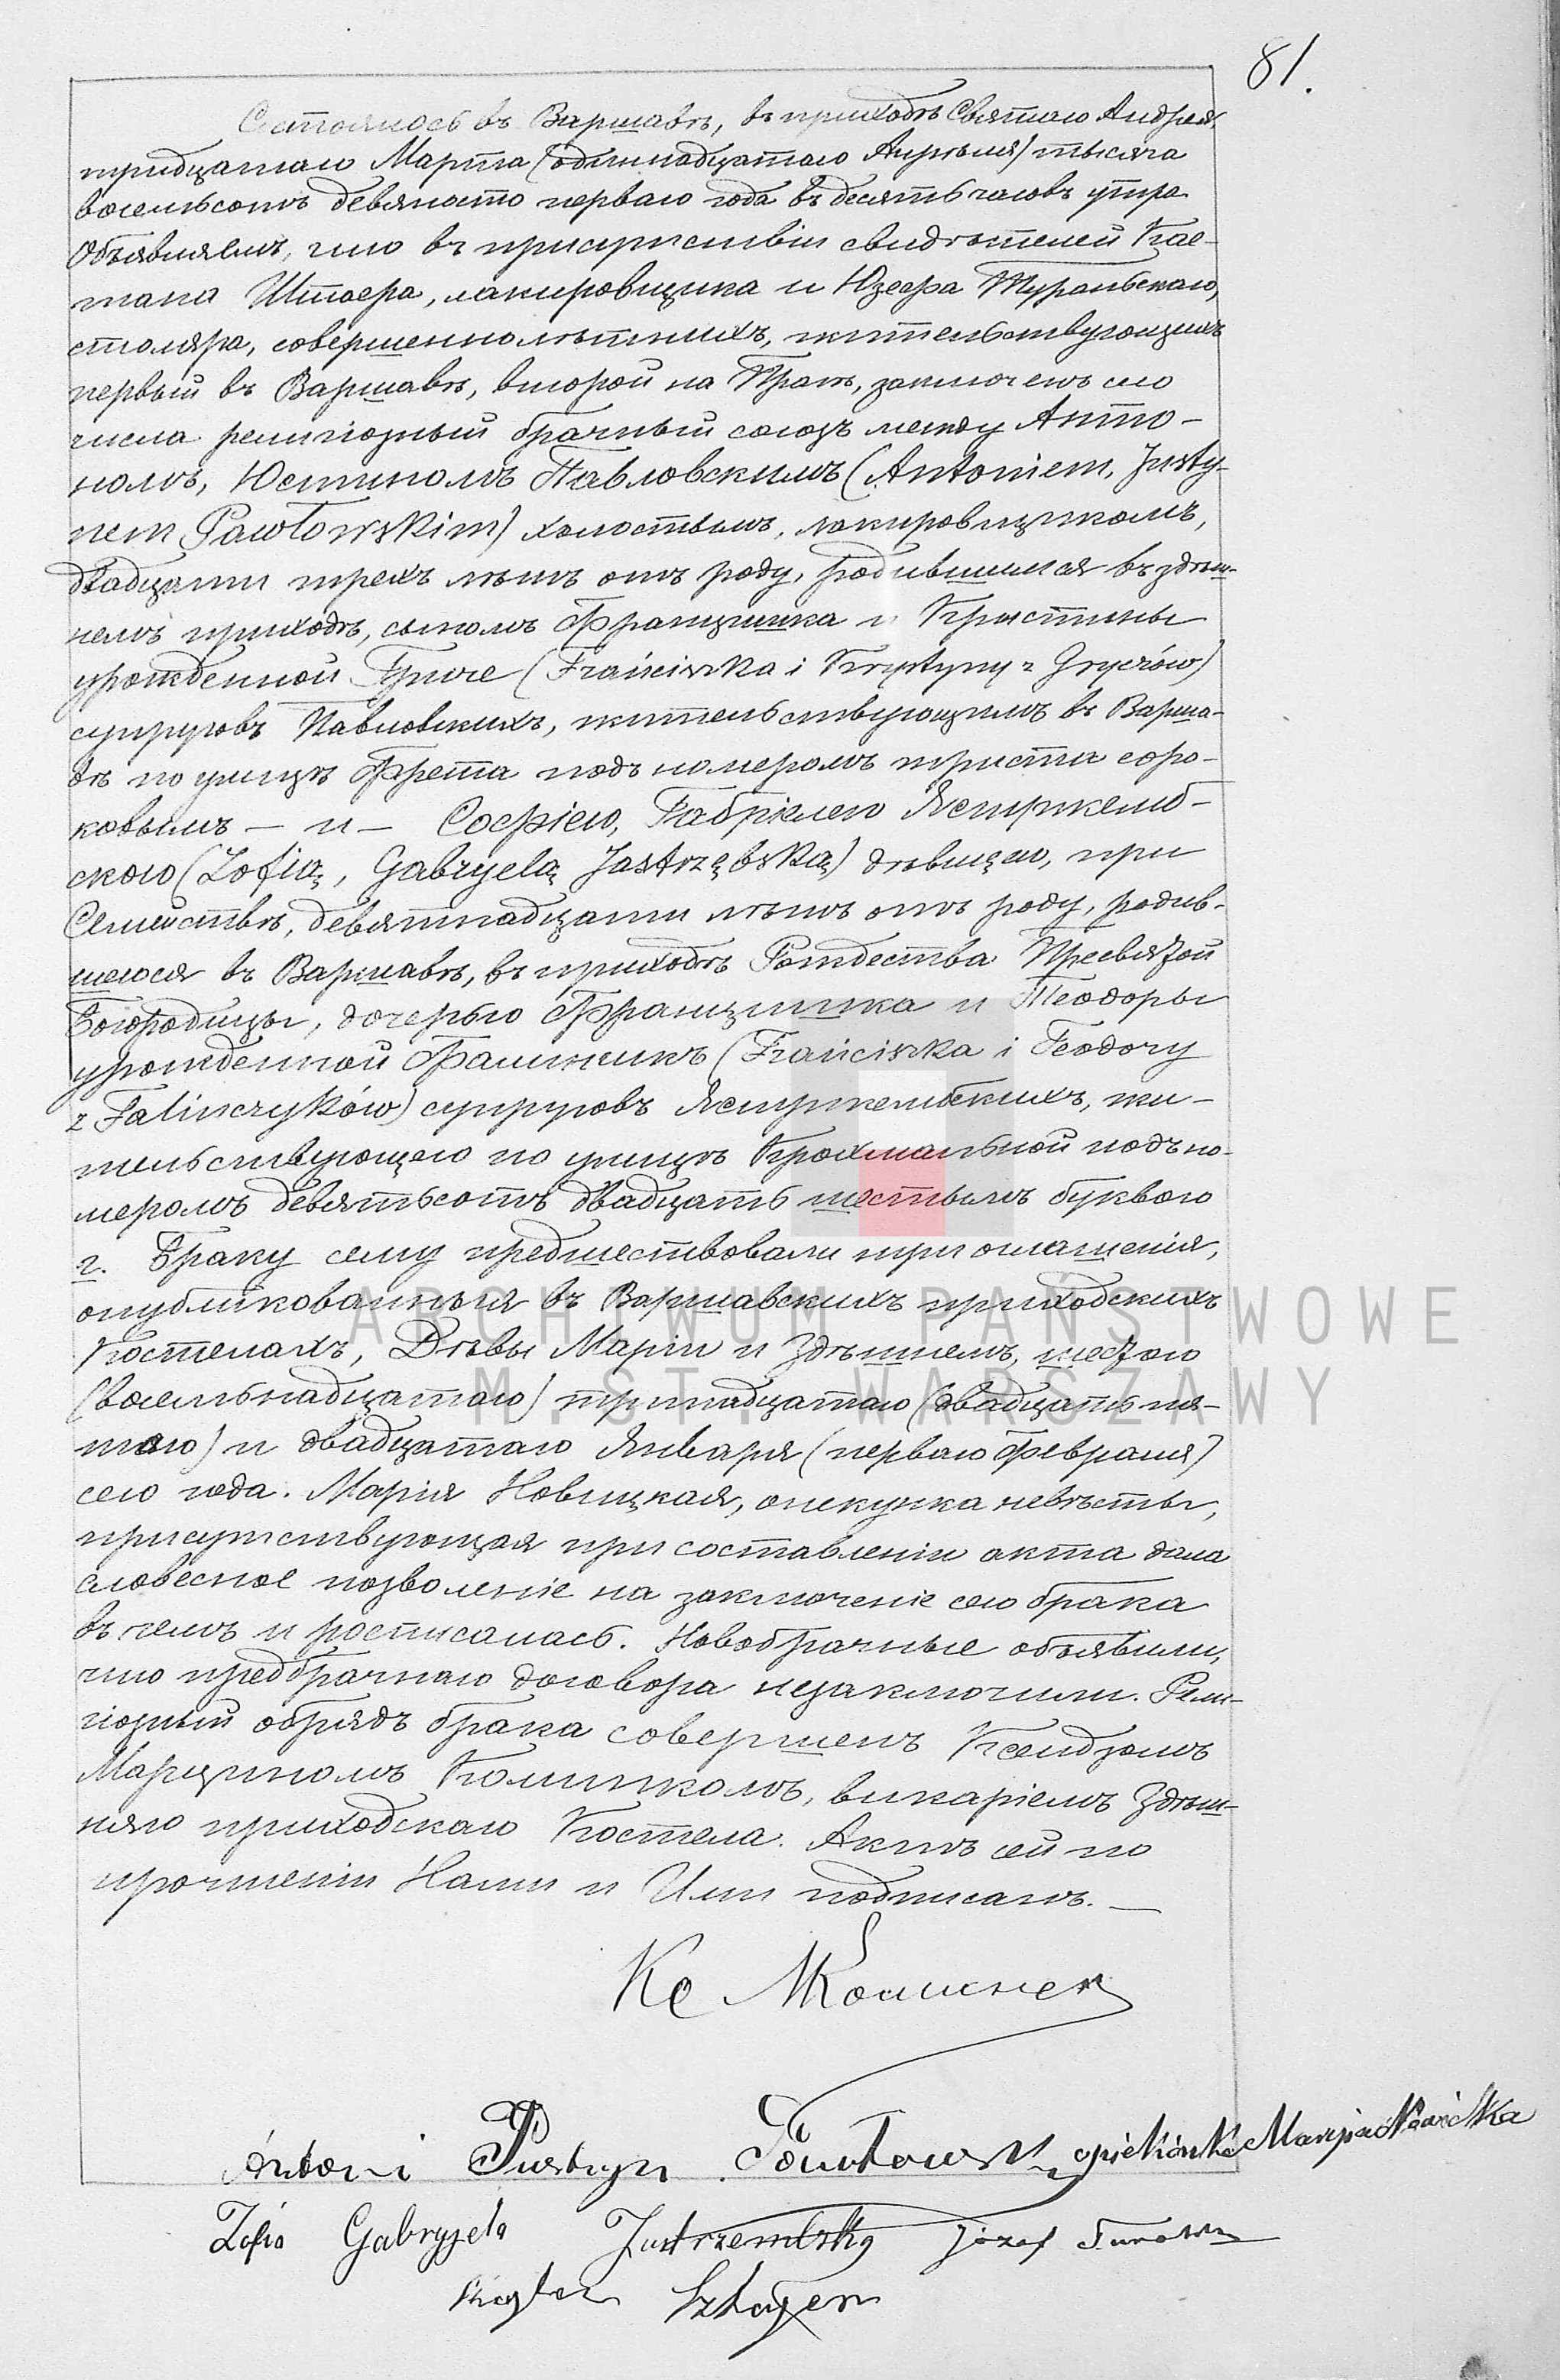 81.
Состоялось въ Варшавѣ, въ приходѣ Святаго Андрея,
тридцатаго Марта (одинадцатаго Апрѣля) тысяча
восемьсотъ девяносто перваго года въ десять часовъ утра
Объявляемъ, что въ присутствіи свидѣтелей Кае-
тана Штоера, лакировщика и Юзефа Туральскаго,
столяра, совершеннолѣтнихъ, жительствующихъ
первый въ Варшавѣ, второй на Прагѣ, заключенъ сего
числа религіозный брачный союзъ между Анто-
номъ, Юстиномъ Павловскимъ (Antoniem, Justy-
nem Pawłowskim) холостымъ, лакировщикомъ,
двадцати трехъ лѣтъ отъ роду, родившимся въ здѣш-
немъ приходѣ, сыномъ Францишка и Кристины
урожденной (Franciszka i Krystyny z Gryczów)
супруговъ Павловскихъ, жительствующимъ въ Варша-
вѣ по улицѣ Фрета подъ номеромъ триста соро-
ковымъ — и — Софіею, Габріелею Ястржемб-
скою (Zofią, Gabryelą Jastrzębską) дѣвицею, при
Семействѣ, девятнадцати лѣтъ отъ роду, родив-
шеюся въ Варшавѣ, въ приходѣ Рождества Пресвятой
Богородицы, дочерью Францишка и Теодоры
урожденной Фалинчикъ (Franciszka i Teodory
z Falinczyków) супруговъ Ястржембскихъ, жи-
тельствующею по улицѣ Крохмальной подъ но-
меромъ девятьсотъ двадцать шестымъ буквою
г. Браку сему предшествовали три оглашенія,
опубликованныя въ Варшавскихъ приходскихъ
Костелахъ, Дѣвы Маріи и Здѣшнемъ, шестаго
(восемьнадцатаго) тринадцатаго (двадцать пя-
таго) и двадцатаго Января (перваго Февраля)
сего года. Марія Новицкая, опекунка невѣсты,
присутствующая при составленіи акта дала
словесное позволеніе на заключеніе сего брака
въ чемъ и росписалась. Новобрачные объявили,
что предбрачнаго договора незаключили. Рели-
гіозный обрядъ брака совершенъ Ксендзомъ
Марциномъ викаріемъ Здѣш-
няго приходскаго Костела. Актъ сей по
прочтеніи Нами и Ими подписанъ. —
Кс
Antoni Justyn Pawłowski opiekónka Maryia Nowicka
Zofia Gabryjela Jastrzembska Józef
ARCHIWUM PAŃSTWOWE
M. ST. WARSZAWY